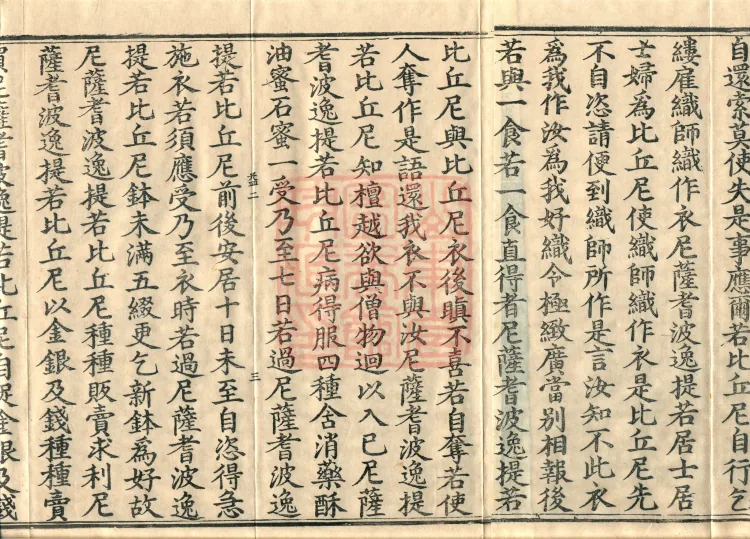 自還索莫使失是事應爾若比丘尼自行乞
縷雇織師織作衣尼薩耆波逸提若居士居
士婦為比丘尼使織師織作衣是比丘尼先
不自恣請便到織師所作是言汝知不此衣
為我作汝為我好織令極緻廣當別相報後
若與一食若一食直得者尼薩耆波逸提若
比丘尼與比丘尼衣後瞋不喜若自奪若使
人奪作是語還我衣不與汝尼薩耆波逸提
若比丘尼知檀越欲與僧物迴以入已尼薩
耆波逸提若比丘尼病得服四種含消藥酥
油蜜石蜜一受乃至七日若過尼薩耆波逸
益二 三
提若比丘尼前後安居十日未至自恣得急
施衣若須應受乃至衣時若過尼薩耆波逸
提若比丘尼鉢未滿五綴更乞新鉢為好故
尼薩耆波逸提若比丘尼種種販賣求利尼
薩耆波逸提若比丘尼以金銀及錢種種賣
買尼薩耆波逸提若比丘尼自捉金銀及錢